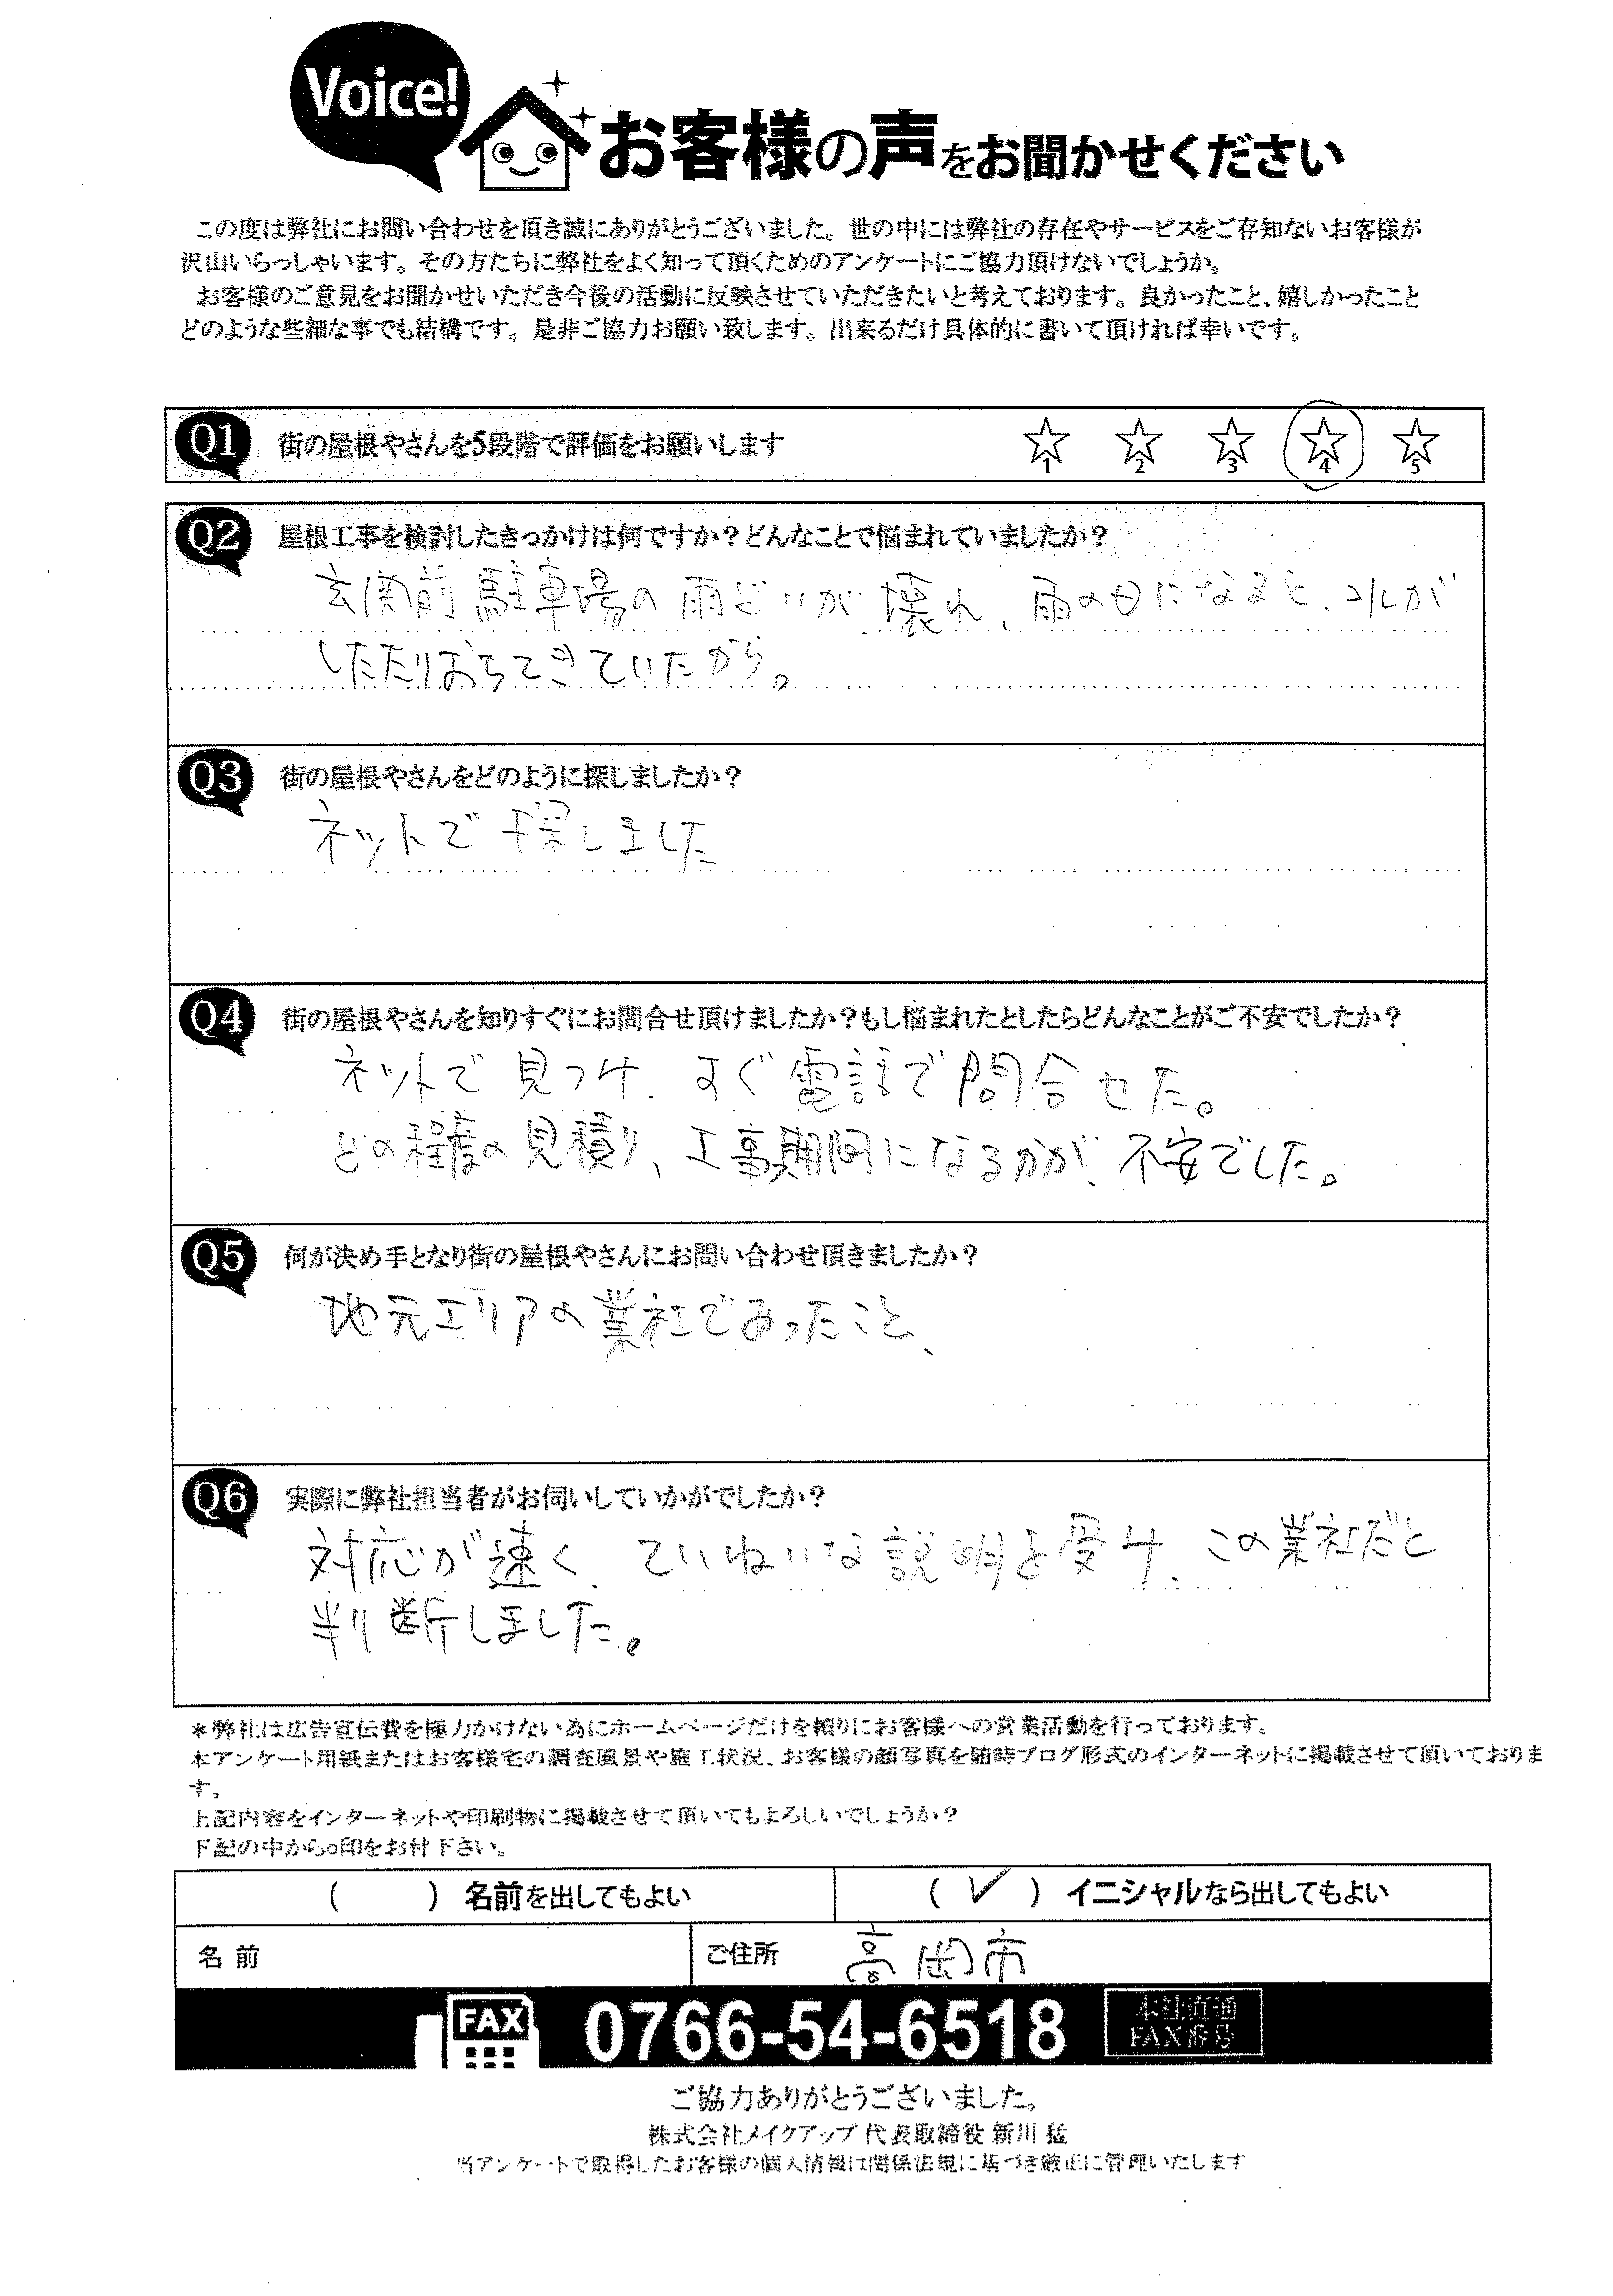 Voice!
お客様の声をお聞かせください
この度は弊社にお問い合わせを頂き誠にありがとうございました。世の中には弊社の存在やサービスをご存知ないお客様が
沢山いらっしゃいます。その方たちに弊社をよく知って頂くためのアンケートにご協力頂けないでしょうか。
お客様のご意見をお聞かせいただき今後の活動に反映させていただきたいと考えております。良かったこと、嬉しかったこと
どのような些細な事でも結構です。是非ご協力お願い致します。出来るだけ具体的に書いて頂ければ幸いです。
Q1 街の屋根やさんを5段階で評価をお願いします ☆1 ☆2 ☆3 ☆4 ☆5
Q2 屋根工事を検討したきっかけは何ですか？どんなことで悩まれていましたか？
玄関前駐車場の雨どいが壊れ、雨の日になると、水が
したたりおちてきていたから。
Q3 街の屋根やさんをどのように探しましたか？
ネットで探しました
Q4 街の屋根やさんを知りすぐにお問合せ頂けましたか？もし悩まれたとしたらどんなことがご不安でしたか？
ネットで見つけ、すぐ電話で問合せた。
どの程度の見積り、工事期間になるかが、不安でした。
Q5 何が決め手となり街の屋根やさんにお問い合わせ頂きましたか？
地元エリアの業社であったこと、
Q6 実際に弊社担当者がお伺いしていかがでしたか？
対応が速く、ていねいな説明を受け、この業社だと
判断しました。
＊弊社は広告宣伝費を極力かけない為にホームページだけを頼りにお客様への営業活動を行っております。
本アンケート用紙またはお客様宅の調査風景や施工状況、お客様の顔写真を随時ブログ形式のインターネットに掲載させて頂いておりま
す。
上記内容をインターネットや印刷物に掲載させて頂いてもよろしいでしょうか？
下記の中から○印をお付下さい。
（　　）名前を出してもよい （✓）イニシャルなら出してもよい
名前 ご住所 高岡市
FAX 0766-54-6518 本社直通
FAX番号
ご協力ありがとうございました。
株式会社メイクアップ 代表取締役 新川 猛
当アンケートで取得したお客様の個人情報は関係法規に基づき厳正に管理いたします